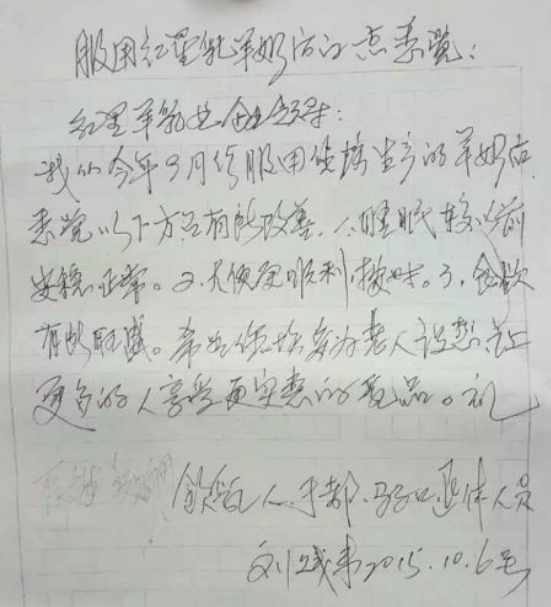 服用红星乳羊奶后的点感觉：
红星羊乳业企业领导：
我从今年9月份服用贵场生产的羊奶后
感觉以下方面有所改善，1、睡眠较以前
安稳正常。2、大便更顺利，按时。3、食欲
有所旺盛。希望你场多为老人设想，让
更多的人享受更实惠的乳品。礼
饮乳人、干部、退休人员
2015.10.6号